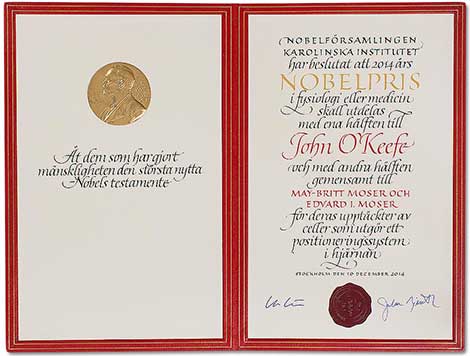 Åt dem som har gjort
mänskligheten den största nytta
Nobels testamente
NOBELFÖRSAMLINGEN
KAROLINSKA INSTITUTET
har beslutat att 2014 års
NOBELPRIS
i fysiologi eller medicin
skall utdelas
med ena hälften till
John O'Keefe
och med andra hälften
gemensamt till
MAY-BRITT MOSER OCH
EDVARD I. MOSER
för deras upptäckter av
celler som utgör ett
positioneringssystem
i hjärnan
STOCKHOLM DEN 10 DECEMBER 2014